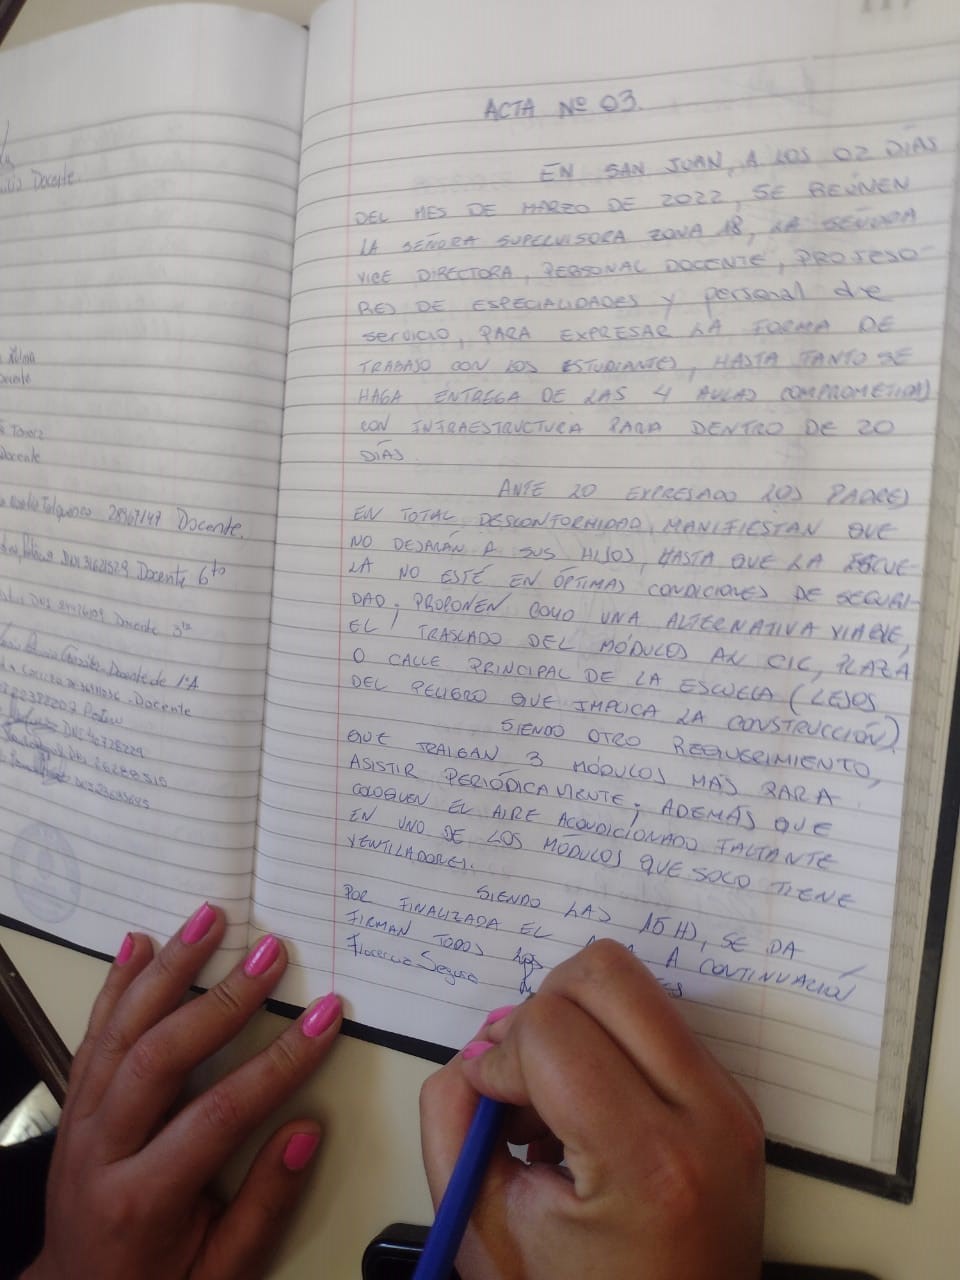 Docente.
Docente
Docente
Docente.
Docente 6to
Docente 3ra
Docente de 1ºA
Docente
ACTA Nº 03.
EN SAN JUAN, A LOS 02 DÍAS
DEL MES DE MARZO DE 2022, SE REÚNEN
LA SEÑORA SUPERVISORA ZONA 18, LA SEÑORA
VICE DIRECTORA, PERSONAL DOCENTE, PROFESO-
RES DE ESPECIALIDADES y personal de
servicio, PARA EXPRESAR LA FORMA DE
TRABAJO CON LOS ESTUDIANTES, HASTA TANTO SE
HAGA ENTREGA DE LAS 4 AULAS COMPROMETIDAS
CON INFRAESTRUCTURA PARA DENTRO DE 20
DÍAS.
ANTE LO EXPRESADO LOS PADRES
EN TOTAL DESCONFORMIDAD, MANIFIESTAN QUE
NO DEJARÁN A SUS HIJOS, HASTA QUE LA ESCUE-
LA NO ESTÉ EN ÓPTIMAS CONDICIONES DE SEGURI-
DAD; PROPONEN COMO UNA ALTERNATIVA VIABLE,
EL TRASLADO DEL MÓDULOS AN CIC, PLAZA
O CALLE PRINCIPAL DE LA ESCUELA (LEJOS
DEL PELIGRO QUE IMPLICA LA CONSTRUCCIÓN).
SIENDO OTRO REQUERIMIENTO,
QUE TRAIGAN 3 MÓDULOS MÁS PARA
ASISTIR PERIÓDICAMENTE; ADEMÁS QUE
COLOQUEN EL AIRE ACONDICIONADO FALTANTE
EN UNO DE LOS MÓDULOS QUE SOLO TIENE
VENTILADORES.
SIENDO LAS 15 HS, SE DA
POR FINALIZADA EL A CONTINUACIÓN
FIRMAN TODOS LOS
Florencia Segura